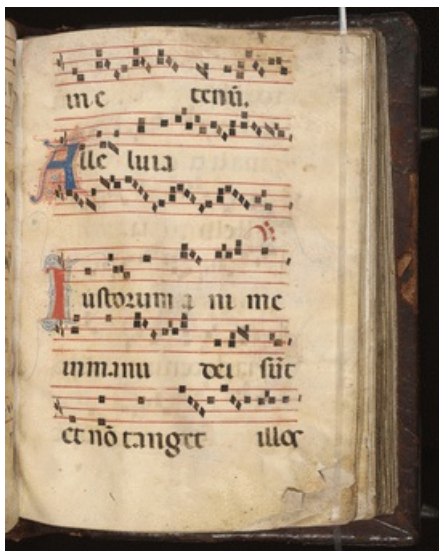 in e tenū.
Alle luia
Iustorum a ni me
in manu dei sūt
et nō tanget illos